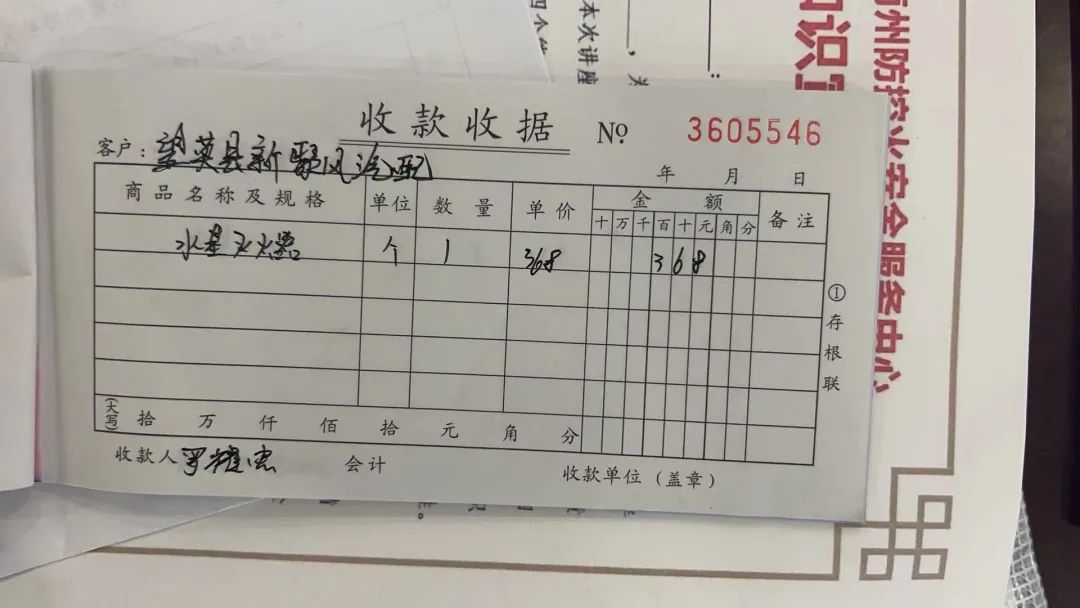 收款收据 № 3605546
客户：望英县新聚风冷配
年 月 日
商品名称及规格 单位 数量 单价 金额 备注
十 万 千 百 十 元 角 分
水星灭火器 个 1 368 3 6 8
①存根联
(大写) 拾 万 仟 佰 拾 元 角 分
收款人 会计 收款单位（盖章）
州防控火安全服务中心
识
本次讲座
四个